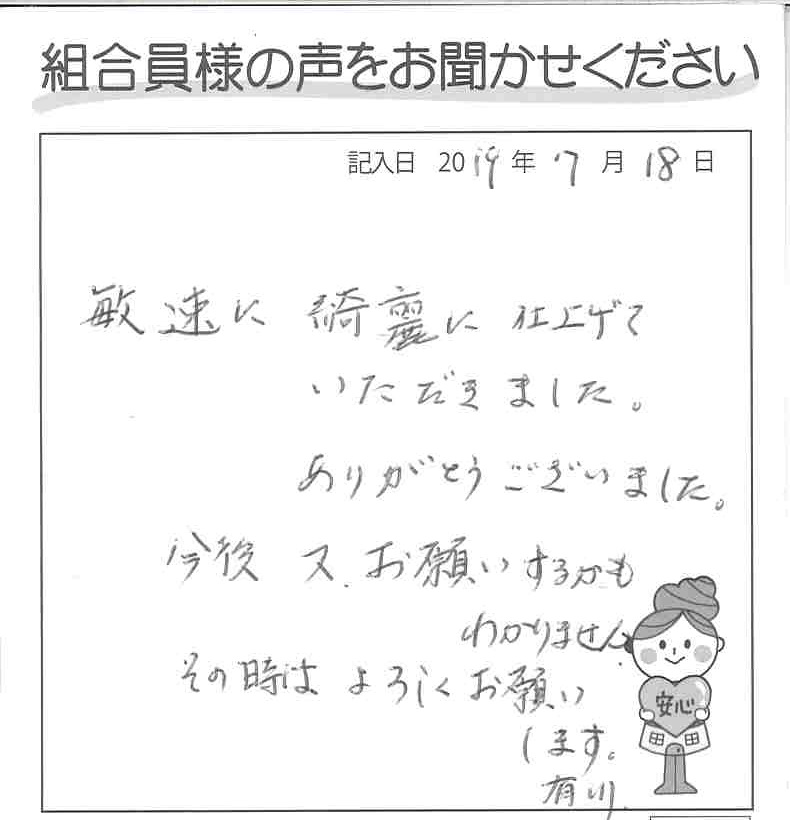 組合員様の声をお聞かせください
記入日 2019年 7月 18日
敏速に 綺麗に 仕上げて
いただきました。
ありがとうございました。
今後 又、お願いするかも
わかりません
その時は よろしくお願い
します。
有川
安心